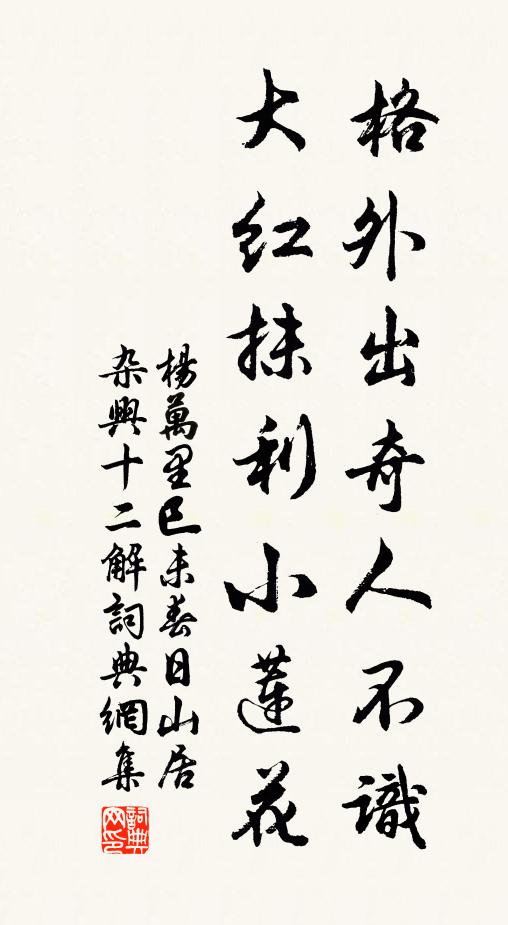 格外出奇人不識
大紅抹利小蓮花
楊萬里己未春日山居
杂興十二解詞典網集
詞典网印